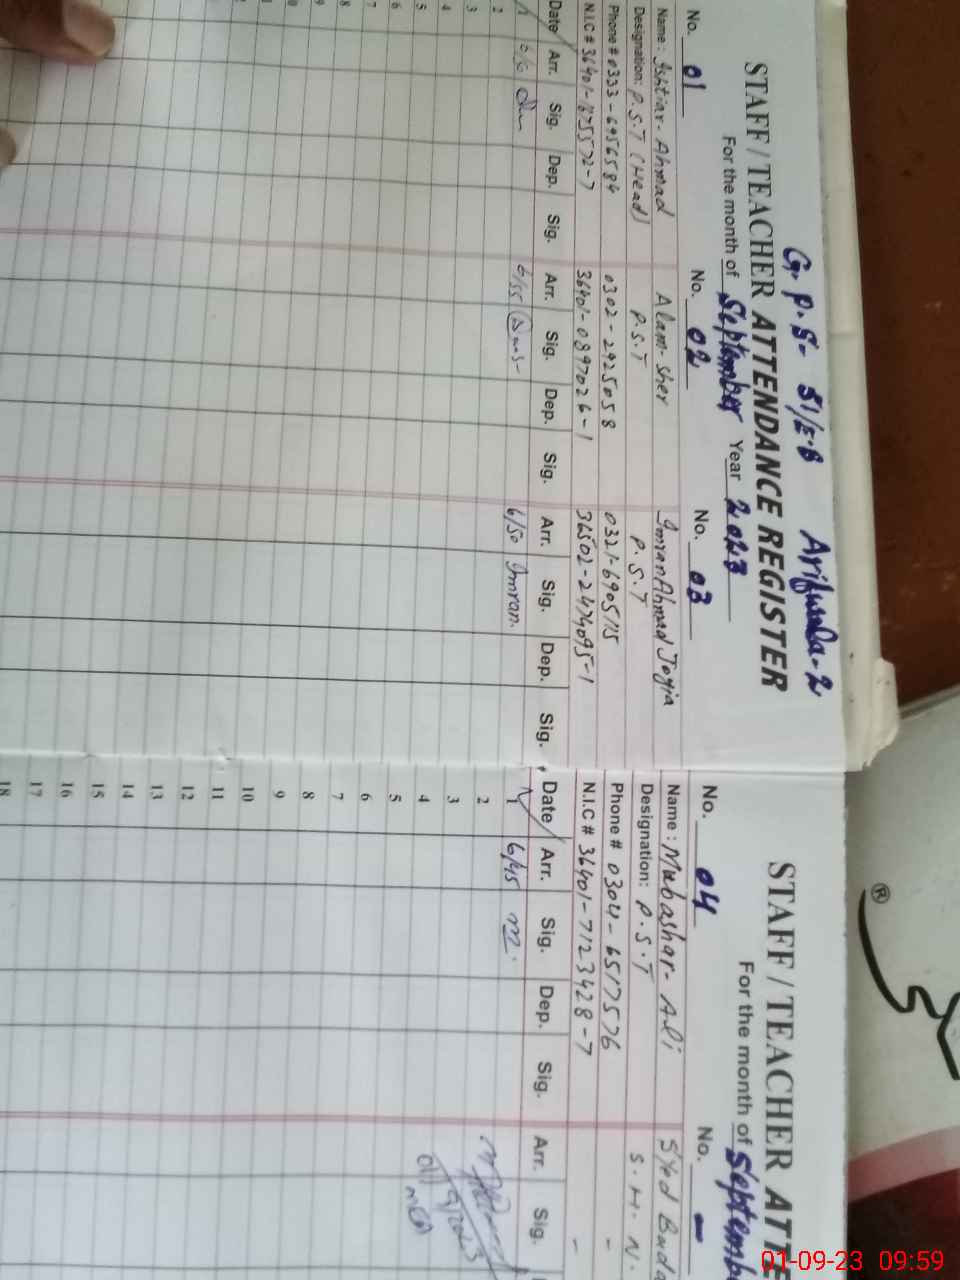 G.P.S- 51/E.B Arifwala-2
STAFF / TEACHER ATTENDANCE REGISTER
For the month of September Year 2023
No. 01 No. 02 No. 03
Name: Ishtiar-Ahmad Alam-sher Imran Ahmad Joyia
Designation: P.S.T (Head) P.S.T P.S.T
Phone # 0333-6956584 0302-2925058 0321-6905115
N.I.C # 36401-1675572-7 36401-0897026-1 36502-2474095-1
Date Arr. Sig. Dep. Sig. Arr. Sig. Dep. Sig. Arr. Sig. Dep. Sig.
6/50 6/55 6/50 Imran.
2
3
4
5
6
7
8
9
STAFF / TEACHER ATTE
For the month of Septemb
No. 04 No. -
Name: Mubashar-Ali Syed Buda
Designation: P.S.T S.H.N.
Phone # 0304-6517576 -
N.I.C # 36401-7123428-7 -
Date Arr. Sig. Dep. Sig. Arr. Sig.
1 6/45 m.
2
3
4
5
6
7
8
9
10
11
12
13
14
15
16
17
18
®
01-09-23 09:59